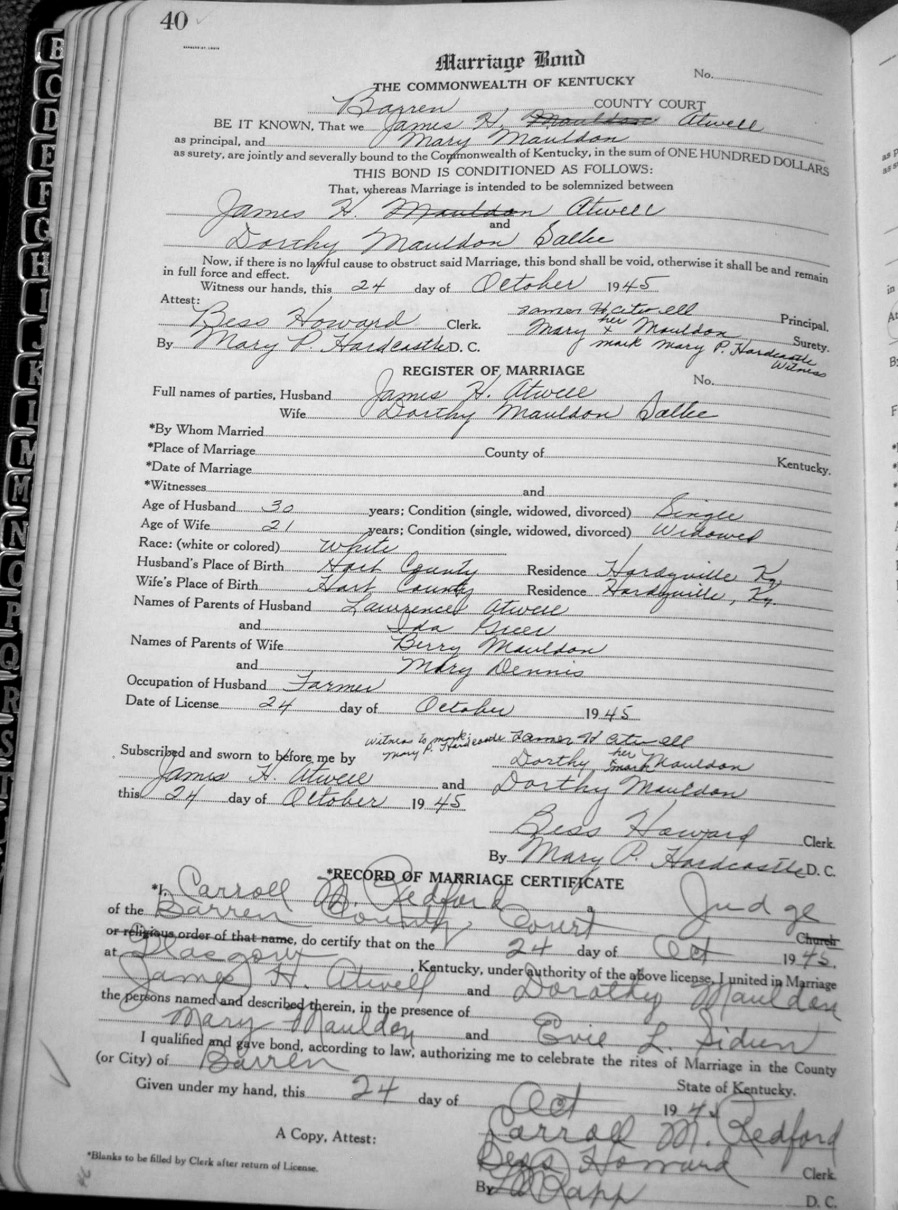 40
Marriage Bond
No.
THE COMMONWEALTH OF KENTUCKY
Barren COUNTY COURT
BE IT KNOWN, That we James H. Mauldon Atwell
as principal, and Mary Mauldon
as surety, are jointly and severally bound to the Commonwealth of Kentucky, in the sum of ONE HUNDRED DOLLARS
THIS BOND IS CONDITIONED AS FOLLOWS:
That, whereas Marriage is intended to be solemnized between
James H. Mauldon Atwell
and
Dorthy Mauldon Sallee
Now, if there is no lawful cause to obstruct said Marriage, this bond shall be void, otherwise it shall be and remain
in full force and effect.
Witness our hands, this 24 day of October 1945
Attest: James H Atwell Principal.
Bess Howard Clerk. Mary her x Mauldon Surety.
By Mary P. Hardcastle D. C. mark Mary P. Hardcastle
Witness
REGISTER OF MARRIAGE
No.
Full names of parties, Husband James H. Atwell
Wife Dorthy Mauldon Sallee
*By Whom Married
*Place of Marriage County of Kentucky.
*Date of Marriage
*Witnesses and
Age of Husband 30 years; Condition (single, widowed, divorced) Single
Age of Wife 21 years; Condition (single, widowed, divorced) Widowed
Race: (white or colored) White
Husband's Place of Birth Hart County Residence Hardyville Ky.
Wife's Place of Birth Hart County Residence Hardyville, Ky.
Names of Parents of Husband Lawrence Atwell
and Ida Greer
Names of Parents of Wife Berry Mauldon
and Mary Dennis
Occupation of Husband Farmer
Date of License 24 day of October 1945
Witness to mark: James H Atwell
Mary P. Hardcastle
Subscribed and sworn to before me by Dorthy her mark Mauldon
James H. Atwell and Dorthy Mauldon
this 24 day of October 1945
Bess Howard Clerk.
By Mary P. Hardcastle D. C.
*RECORD OF MARRIAGE CERTIFICATE
*I, Carroll M. Redford a Judge
of the Barren County Court Church
or religious order of that name, do certify that on the 24 day of Oct 1945,
at Glasgow, Kentucky, under authority of the above license, I united in Marriage
James H. Atwell and Dorothy Mauldon
the persons named and described therein, in the presence of
Mary Mauldon and Evie L.
I qualified and gave bond, according to law, authorizing me to celebrate the rites of Marriage in the County
(or City) of Barren State of Kentucky.
Given under my hand, this 24 day of Oct 194
Carroll M. Redford
A Copy, Attest: Bess Howard Clerk
By D. C.
*Blanks to be filled by Clerk after return of License.
B
O
D
E
F
G
H
I
J
K
L
M
M
N
O
P
Q
R
S
T